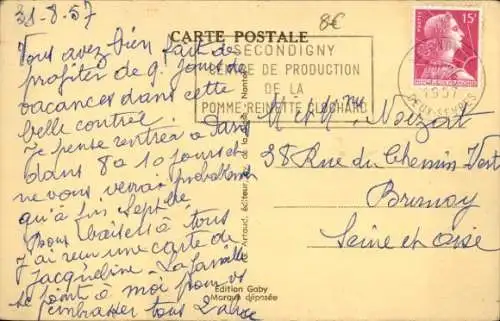 31-8-57
8€
CARTE POSTALE
15F
SECONDIGNY
CENTRE DE PRODUCTION
DE LA
POMME REINETTE CLOCHARD
1957
DEUX-SEVRES
Vous avez bien fait de
profiter de q. jours de
vacances dans cette
belle contrée.
Je pense rentrer à Paris
dans 8 à 10 jours et
ne vous verrai probablement
qu'à fin Septbre
Bons baisers à tous
J'ai reçu une carte de
Jacqueline - La famille
se joint à moi pour vs
embrasser tous
Mr & Mme Noizat
38 Rue du Chemin Vert
Brunoy
Seine et Oise
Artaud, éditeur, de la Nantes
Edition Gaby
Marque déposée